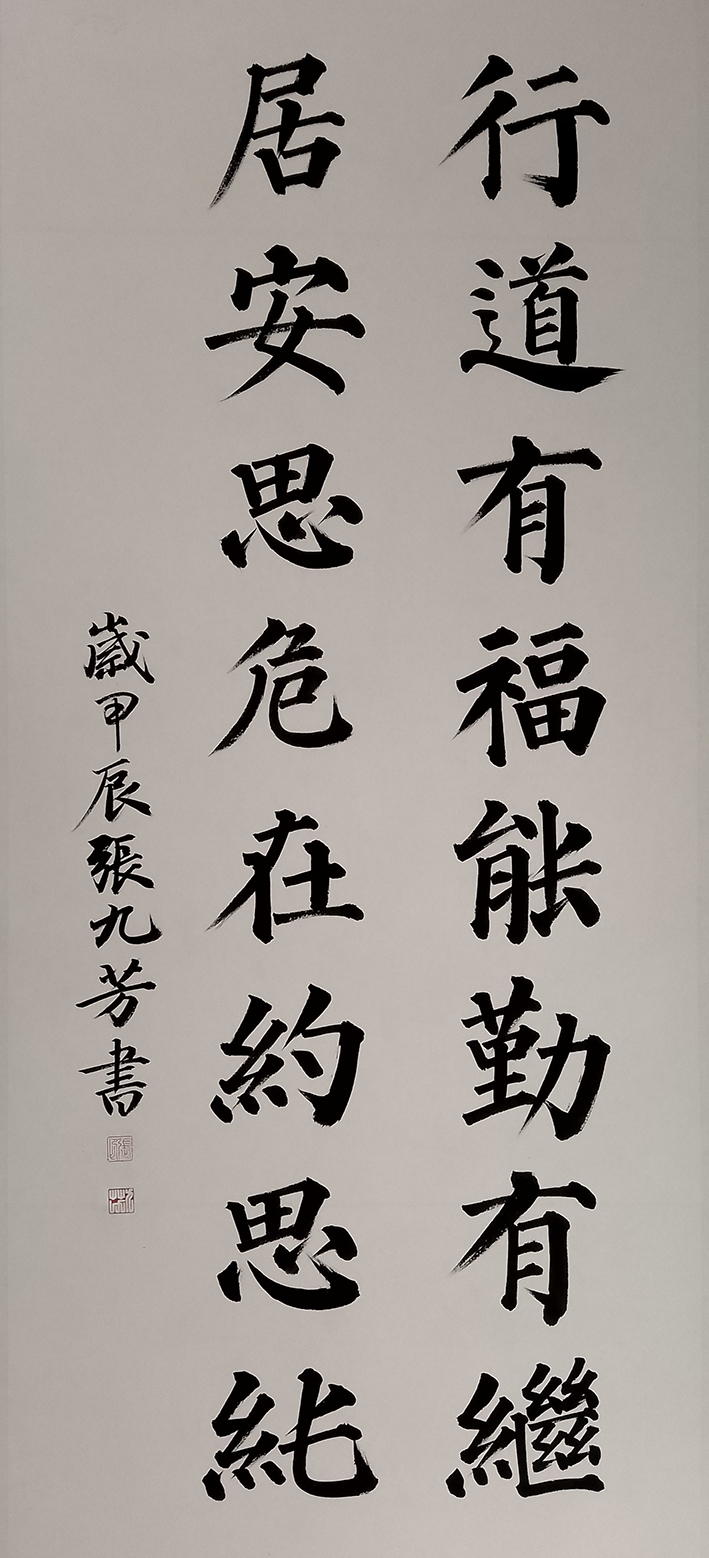 行道有福能勤有繼
居安思危在約思純
歲甲辰張九芳書